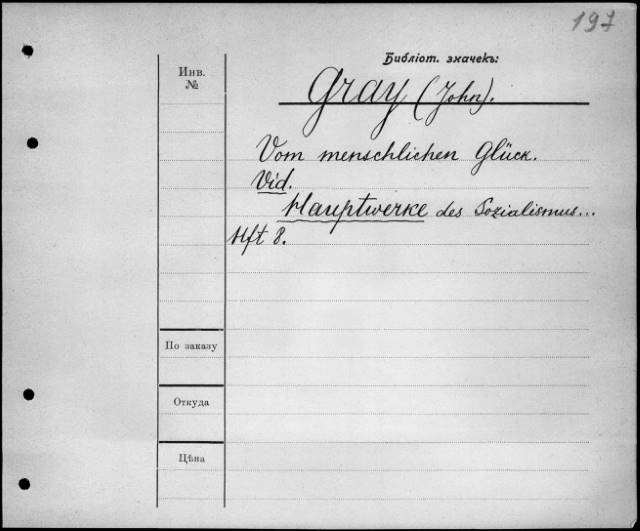 197
Библіот. значекъ:
Инв.
№
Gray (John).
Vom menschlichen Glück.
Vid.
Hauptwerke des Sozialismus...
Hft 8.
По заказу
Откуда
Цѣна